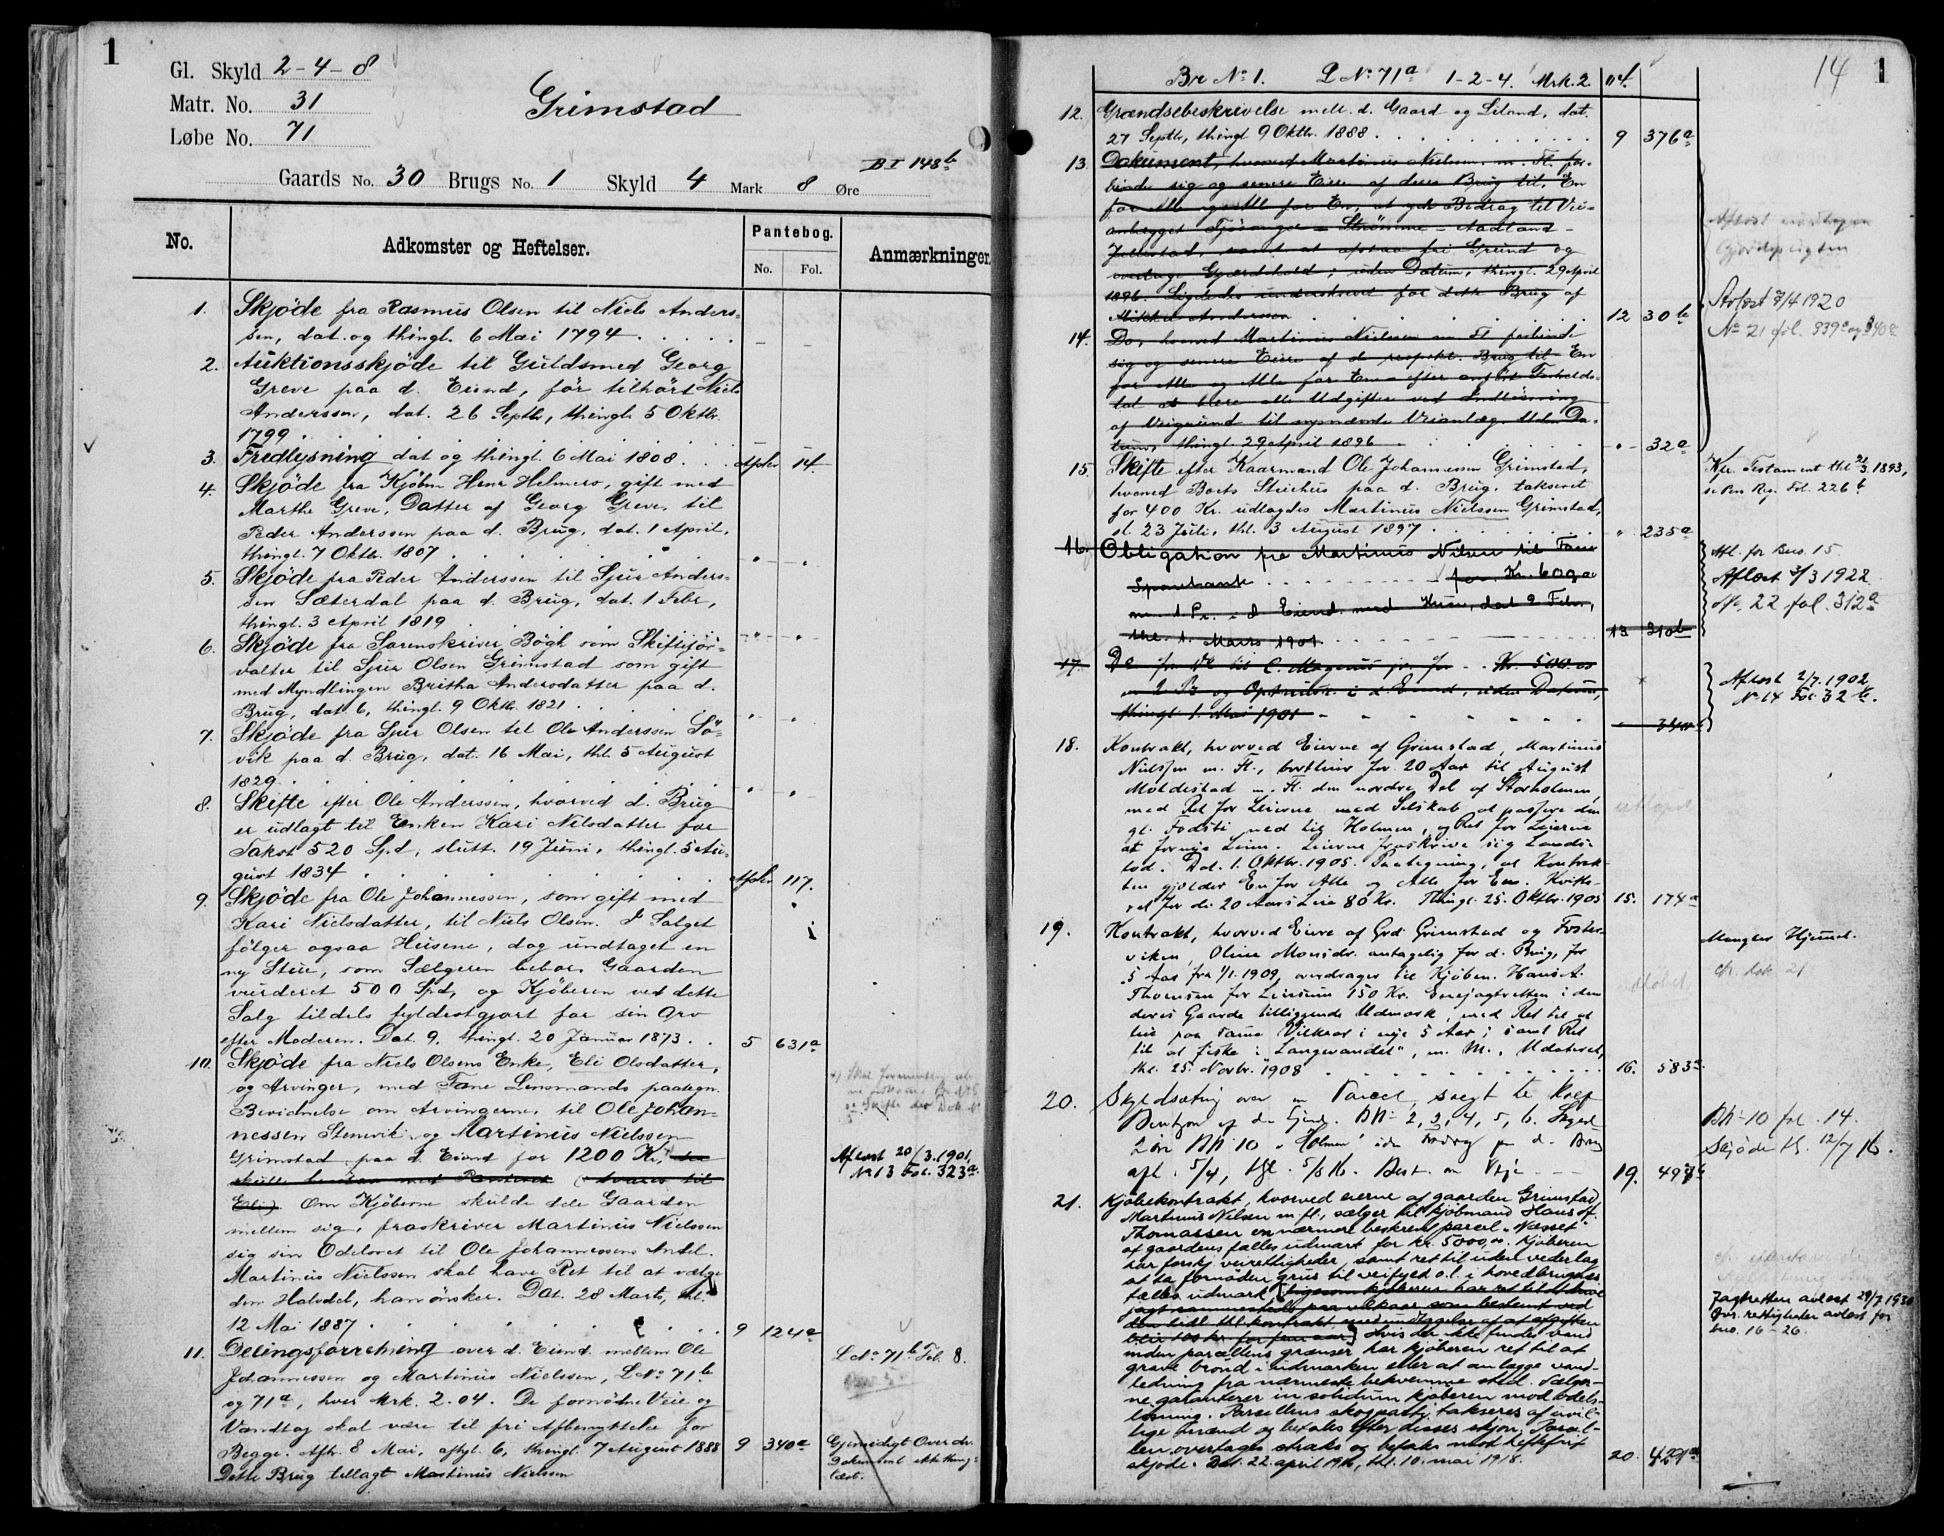 1
Gl. Skyld 2-4-8
Matr. No. 31
Løbe No. 71
Grimstad
B I 148b
Gaards No. 30 Brugs No. 1 Skyld 4 Mark 8 Øre
No.
Adkomster og Heftelser.
Pantebog.
No. Fol.
Anmærkninger.
1. Skjøde fra Rasmus Olsen til Niels Anders-
sen, dat. og thingl. 6 Mai 1794
2. Auktionsskjøde til Guldsmed Georg
Greve paa d. Eiend, før tilhørt Niels
Anderssen, dat. 26 Septbr, thingl. 5 Oktbr.
1799
3. Fredlysning dat og thingl. 6 Mai 1808 14
4. Skjøde fra Kjøbm Hans Helmers, gift med
Marthe Greve, Datter af Georg Greve, til
Peder Anderssen paa d. Brug, dat. 1 April,
thingl. 7 Oktb. 1807
5. Skjøde fra Peder Anderssen til Sjur Anders-
sen Sæterdal paa d. Brug, dat. 1 Febr,
thingl. 3 April 1819
6. Skjøde fra Sorenskriver Bøgh som Skiftefor-
valter til Sjur Olsen Grimstad som gift
med Myndlingen Britha Andersdatter paa d.
Brug, dat. 6, thingl. 9 Oktb. 1821
7. Skjøde fra Sjur Olsen til Ole Anderssen Sö-
vik paa d. Brug, dat. 16 Mai, thl. 5 August
1829
8. Skifte efter Ole Anderssen, hvorved d. Brug
er udlagt til Enken Kari Nilsdatter for
Takst 520 Spd, slutt. 19 Juni, thingl. 5 Au-
gust 1834 117.
9. Skjøde fra Ole Johannessen, som gift med
Kari Nielsdatter, til Niels Olsen. I Salget
følger ogsaa Husene, dog undtaget en
ny Stue, som Sælgeren bebor. Gaarden
vurderet 500 Spd, og Kjøberen ved dette
Salg tildels fyldestgjort for sin Arv
efter Moderen. Dat. 9, thingl. 20 Januar 1873. 5 631a
10. Skjøde fra Niels Olsens Enke, Eli Olsdatter,
og Arvinger, med Fane Lensmands paategn.
Bevidnelse om Arvingerne, til Ole Johan-
nessen Stenevik og Martinus Nielssen
Grimstad paa d Eiend for 1200 Kr,
Om Kjøberne skulde dele Gaarden
mellem sig, fraskriver Martinus Nielssen
sig sin Odelsret til Ole Johannessens Andel.
Martinus Nielssen skal have Ret til at vælge
den Halvdel, han ønsker. Dat. 28 Marts, thl.
12 Mai 1887 9 124a
Afløst 20/3.1901,
No 13 Fol. 323a.
11. Delingsforretning over d. Eiend. mellem Ole
Johannessen og Martinus Nielssen, L.No 71b
og 71a, hver Mrk. 2.04. De fornødne Veie og
Vandtag skal være til fri Afbenyttelse for
Begge. Afh. 8 Mai, afhgl. 6, thingl. 7 August 1888 9 340a
Dette Brug tillagt Martinus Nielssen
L.No 71b Fol. 8.
Gjensidigt Over dr.
Dokument ikke thing-
læst.
Br No 1. L No 71a 1-2-4. Mrk. 2 04.
14 1
12. Grændsebeskrivelse mell. d. Gaard og Liland, dat.
27 Septb, thingl 9 Oktb. 1888 9 376a
13. Dokument, hvorved Martinus Nielssen m. Fl. for-
binde sig og senere Eiere af deres Brug til, En
for Alle og Alle for En, at yde Bidrag til Vei-
anlægget Fjøsanger - Strømme - Aadland -
samt at afstaa fri Grund og
overtage Gjærdehold; uden Datum, thingl. 29 April
1896. Ligeledes underskrevet for dette Brug af
Mikkel Anderssen 12 30b
Afløst 7/4 1920
No 21 fol. 339a og 340a
14. Do, hvorved Martinus Nielssen m Fl forbinde
sig og senere Eiere af de respekt. Brug til En
for Alle og Alle for En efter anført Forholds-
tal at bære alle Udgifter ved Indløsning
af Veigrund til nysnævnte Veianlæg. Uden Da-
tum, thingl. 29 April 1896 " 32a
15. Skifte efter Kaarmand Ole Johannessen Grimstad,
hvorved Boets Stuehus paa d. Brug, takseret
for 400 Kr. udlagdes Martinus Nielssen Grimstad,
sl. 23 Juli, thl. 3 August 1897 " 235a
Kfr. Testament thl 21/3.1893,
se Pers Reg. Fol. 226b
16. Obligation fra Martinus Nilsen til Fane
Sparebank for Kr. 600.00
m 1 Pr. i d Eiend. med Huse, dat 2 Febr,
thl. 1. Marts 1901 13 310b
Afl. for Bno. 15.
Aflöst 3/3 1922
No. 22 fol. 312a
17. Do fra do til C. Magnus jr. for Kr. 500.00
m 2 Pr og Opsudbr. i d Eiend, uden Datum,
thingl. 1. Mai 1901
Aflöst 2/7.1902,
No 14 Fol. 32b.
18. Kontrakt, hvorved Eierne af Grimstad, Martinus
Nielsen m. Fl., bortleier for 20 Aar til August
Moldestad m. Fl. den nordre Del af Storholmen,
med Ret for Leierne med Selskab at passere den
gl. Fodsti ned til Holmen, og Ret for Leierne
at fornye Leien. Leierne fraskrive sig Lands-
lod. Dat. 1. Oktbr. 1905. Paategning, at Kontrak-
ten gjælder En for Alle og Alle for Een. Kvitte-
ret for de 20 Aars Leie 80 Kr. Thingl. 25. Oktbr. 1905 15. 174a
19. Kontrakt, hvorved Eiere af Grd. Grimstad og Fester-
viken, Oline Monsdr. antagelig for d. Brug, for
5 Aar fra 1/1. 1909, overdrager til Kjøbm. Hans A.
Thomsen for Leiesum 150 Kr. Enejagtretten i den
deres Gaarde tilliggende Udmark, med Ret til at
leie paa samme Vilkaar i nye 5 Aar; samt Ret
til at fiske i "Langevandet", m. M. Udateret,
thl. 25. Novbr. 1908 16. 583a
Mangler Hjemmel.
20. Skyldsætning over en Parcel, solgt til
af d. Eiend. BN- 2, 3, 4, 5, 6. Skyld
2 öre BN- 10 "Holmen" uden Fradrag paa d. Brug
afh. 5/4, tgl. 5/5 16. Best. om Veje 19. 497a
BN- 10 fol. 14.
Skjøde tl. 12/7 16.
21. Kjøbekontrakt, hvorved eierne af gaarden Grimstad,
Martinus Nilsen m. fl., sælger til kjøbmand Hans A.
Thomassen en nærmere beskrevet parcel "Næsset"
af gaardens fælles udmark for kr. 5000,00. Kjøberen
har forskj. veirettigheder, samt ret til uden vederlag
at ta fornøden grus til veifyld o.l. i hovedbrugets
fælles udmark (ligesom kjøberen har ret til at drive
jagt sammesteds paa vilkaar som bestemt ved
den tidl. thl. kontrakt med undtagelse af at afgiften
blir 100 kr. for fem aar). Hvis der ikke findes vand
inden parcellens grænser har kjøberen ret til at
grave brønd i udmarken eller at anlægge vand-
ledning fra nærmeste bekvemme sted. Sælger-
ne garanterer in solidum kjøberen mod odels-
løsning. Parcellens skogpartj. takseres af uvil-
lige mænd og betales efter disses skjøn. Parcel-
len overtages straks og betales mot heftefrit
skjøde. Dat. 22. april 1918, thl. 10. mai 1918. 20. 421a
Jagtretten avløst 29/7 1930
Øvr. rettigheter avløst for
bno. 16 - 26.